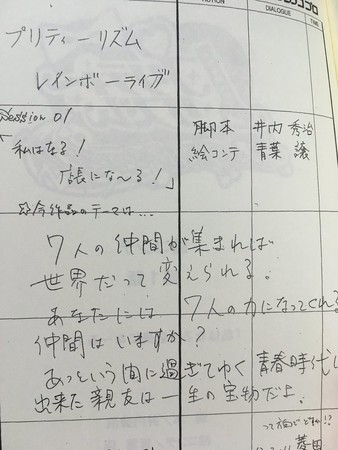 ACTION
DIALOGUE
TIME
プリティーリズム
レインボーライブ
Session 01
「私はなる!
店長にな〜る!」
脚本 井内 秀治
絵コンテ 青葉 譲
今作品のテーマは...
7人の仲間が集まれば
世界だって変えられる。
あなたには 7人の力になってくれる
仲間はいますか?
あっという間に過ぎてゆく 青春時代に
出来た親友は一生の宝物だよ。
って何どですか!?
菱田